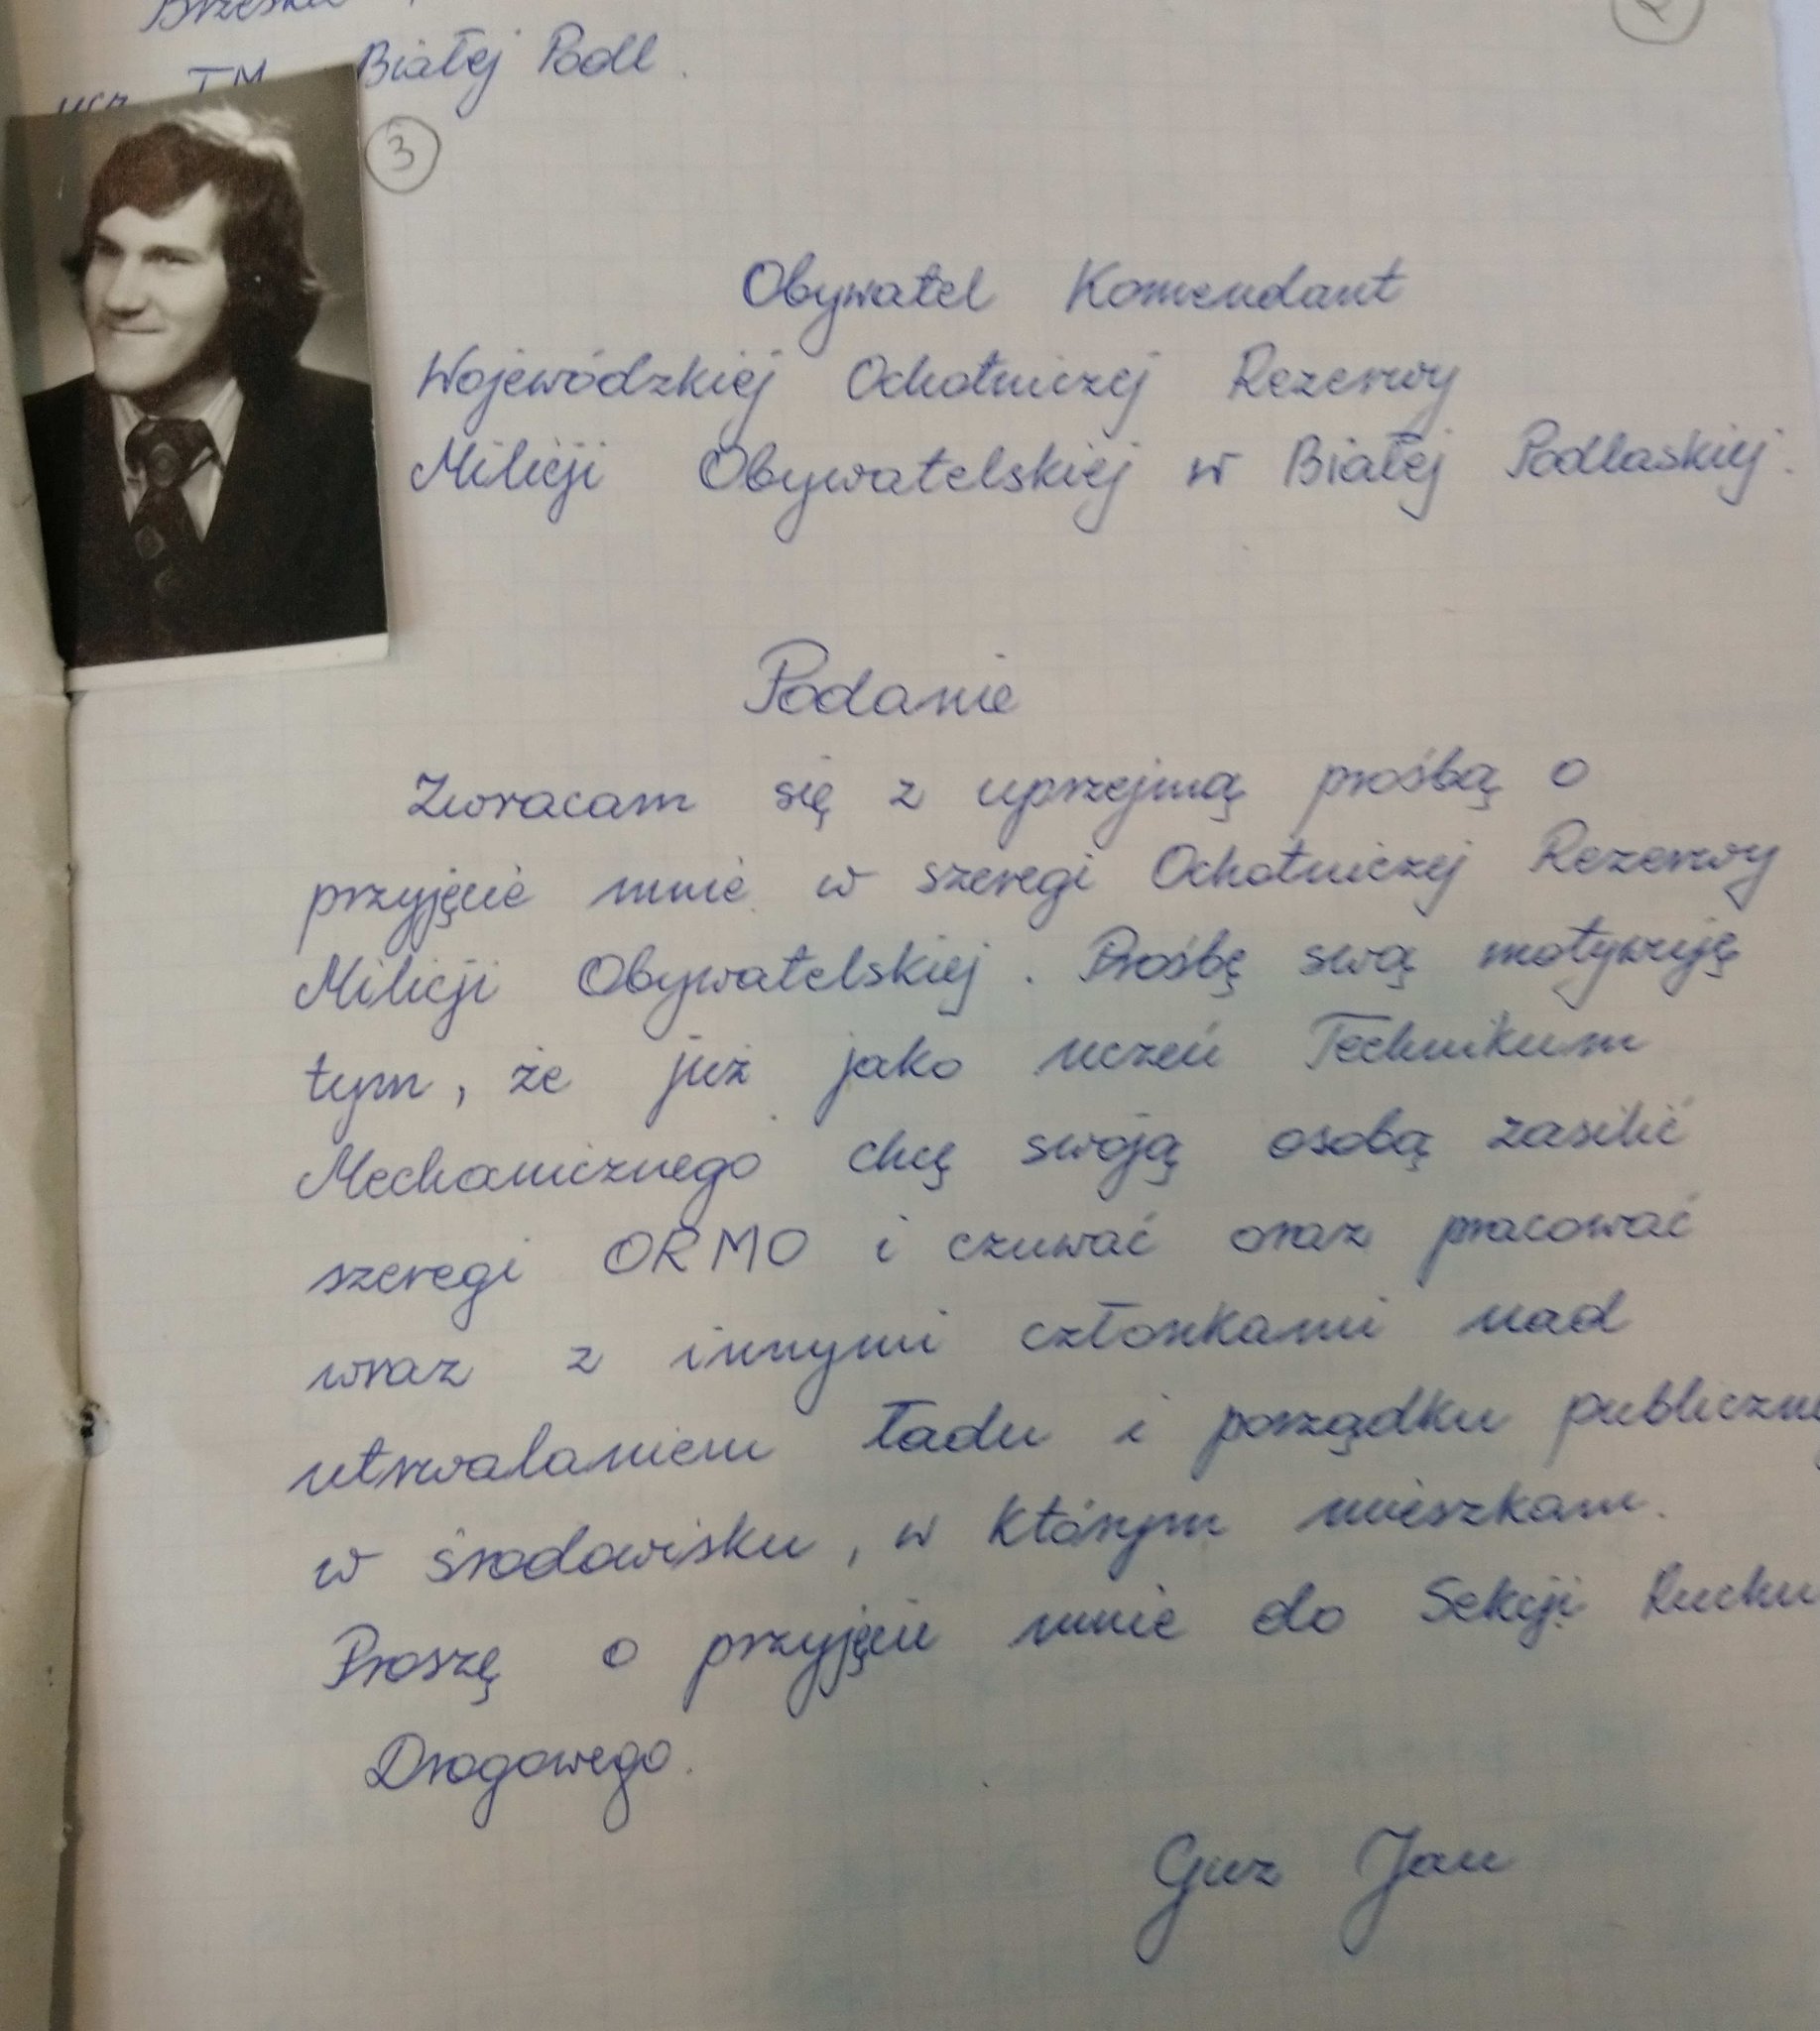 Białej Podl.
3
Obywatel Komendant
Wojewódzkiej Ochotniczej Rezerwy
Milicji Obywatelskiej w Białej Podlaskiej.
Podanie
Zwracam się z uprzejmą prośbą o
przyjęcie mnie w szeregi Ochotniczej Rezerwy
Milicji Obywatelskiej. Prośbę swą motywuję
tym, że już jako uczeń Technikum
Mechanicznego chcę swoją osobą zasilić
szeregi ORMO i czuwać oraz pracować
wraz z innymi członkami nad
utrwalaniem ładu i porządku
w środowisku, w którym mieszkam.
Proszę o przyjęcie mnie do Sekcji Ruchu
Drogowego.
Guz Jan